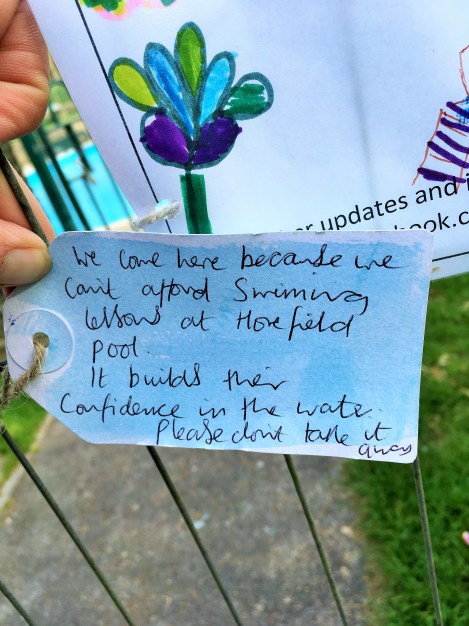 updates and
book.c
We come here because we
Can't afford Swiming
lessons at Horefield
pool.
It builds their
Confidence in the water.
Please don't take it
away